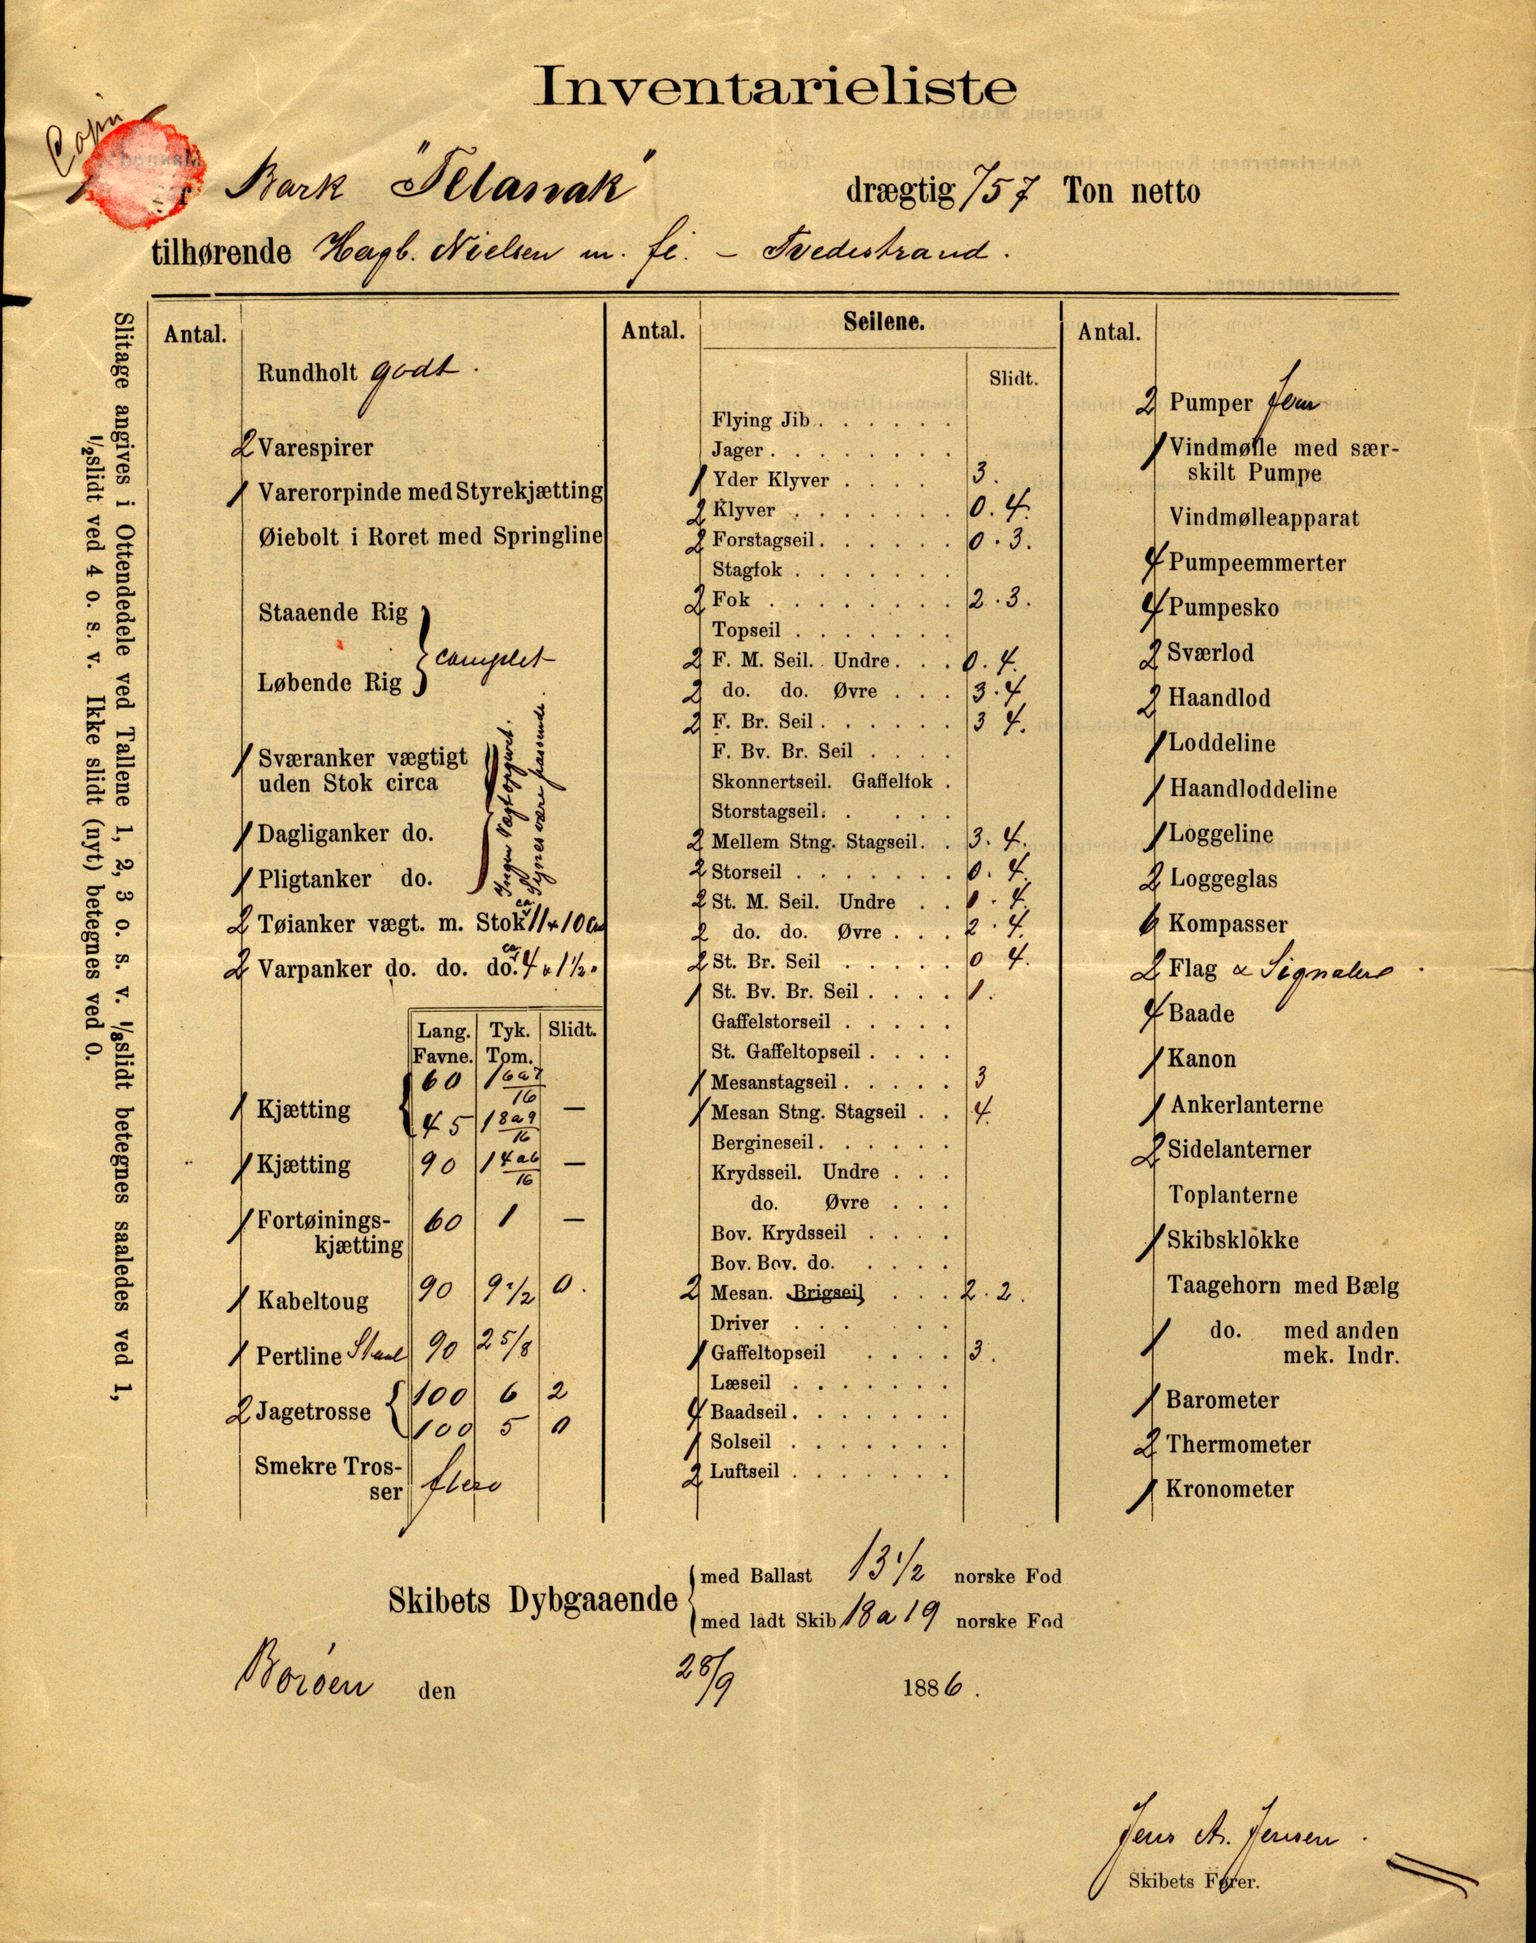 Inventarieliste
Copi
Bark "Telanak" drægtig 757 Ton netto
tilhørende Hagb. Nielsen m. fi. – Tvedestrand.
Slitage angives i Ottendedele ved Tallene 1, 2, 3 o. s. v. 1/8 slidt betegnes saaledes ved 1,
1/2 slidt ved 4 o. s. v. Ikke slidt (nyt) betegnes ved 0.
Antal.
Rundholt godt.
2 Varespirer
1 Varerorpinde med Styrekjætting
Øiebolt i Roret med Springline
Staaende Rig
Løbende Rig } complet
1 Sværanker vægtigt
uden Stok circa
1 Dagliganker do.
1 Pligtanker do.
Ingen Vægt opgivet.
Synes være passende.
2 Tøianker vægt. m. Stok ca 11 & 10 Cw
2 Varpanker do. do. do. ca 4 & 1 1/2 "
Lang. Tyk. Slidt.
Favne. Tom.
1 Kjætting { 60 1 6a7/16
45 1 8a9/16 —
1 Kjætting 90 1 4a6/16 —
1 Fortøinings-
kjætting 60 1 —
1 Kabeltoug 90 9 1/2 0.
1 Pertline Staal 90 2 5/8
2 Jagetrosse { 100 6 2
100 5 0
Smekre Tros-
ser flere
Antal. Seilene.
Slidt.
Flying Jib . . . . . .
Jager . . . . . . . .
1 Yder Klyver . . . . 3.
2 Klyver . . . . . . . 0. 4.
2 Forstagseil . . . . . . 0. 3.
Stagfok . . . . . . .
2 Fok . . . . . . . . 2. 3.
Topseil . . . . . . .
2 F. M. Seil. Undre . . . 0. 4.
2 do. do. Øvre . . . 3. 4
2 F. Br. Seil . . . . . . 3 4.
F. Bv. Br. Seil . . . .
Skonnertseil. Gaffelfok .
Storstagseil. . . . .
2 Mellem Stng. Stagseil. . 3. 4.
2 Storseil . . . . . . . 0. 4.
2 St. M. Seil. Undre . . 0. 4
2 do. do. Øvre . . . 2. 4.
2 St. Br. Seil . . . . . 0 4.
1 St. Bv. Br. Seil . . . . 1.
Gaffelstorseil . . . . .
St. Gaffeltopseil . . . .
1 Mesanstagseil . . . . . 3
1 Mesan Stng. Stagseil . . 4.
Bergineseil . . . . . .
Krydsseil. Undre . . .
do. Øvre . . .
Bov. Krydsseil . . . .
Bov. Bov. do. . . . .
2 Mesan. Brigseil . . . 2. 2.
Driver . . . . . .
1 Gaffeltopseil . . . . 3.
Læseil . . . . . . .
4 Baadseil . . . . . . .
1 Solseil . . . . . . .
2 Luftseil . . . . . . .
Antal.
2 Pumper Jern
1 Vindmølle med sær-
skilt Pumpe
Vindmølleapparat
4 Pumpeemmerter
4 Pumpesko
2 Sværlod
2 Haandlod
1 Loddeline
1 Haandloddeline
1 Loggeline
2 Loggeglas
6 Kompasser
2 Flag & Signaler
4 Baade
1 Kanon
1 Ankerlanterne
2 Sidelanterner
Toplanterne
1 Skibsklokke
Taagehorn med Bælg
1 do. med anden
mek. Indr.
1 Barometer
2 Thermometer
1 Kronometer
Skibets Dybgaaende
med Ballast 13 1/2 norske Fod
med ladt Skib 18 a 19 norske Fod
Borøen den 28/9 1886.
Jens A. Jensen.
Skibets Fører.